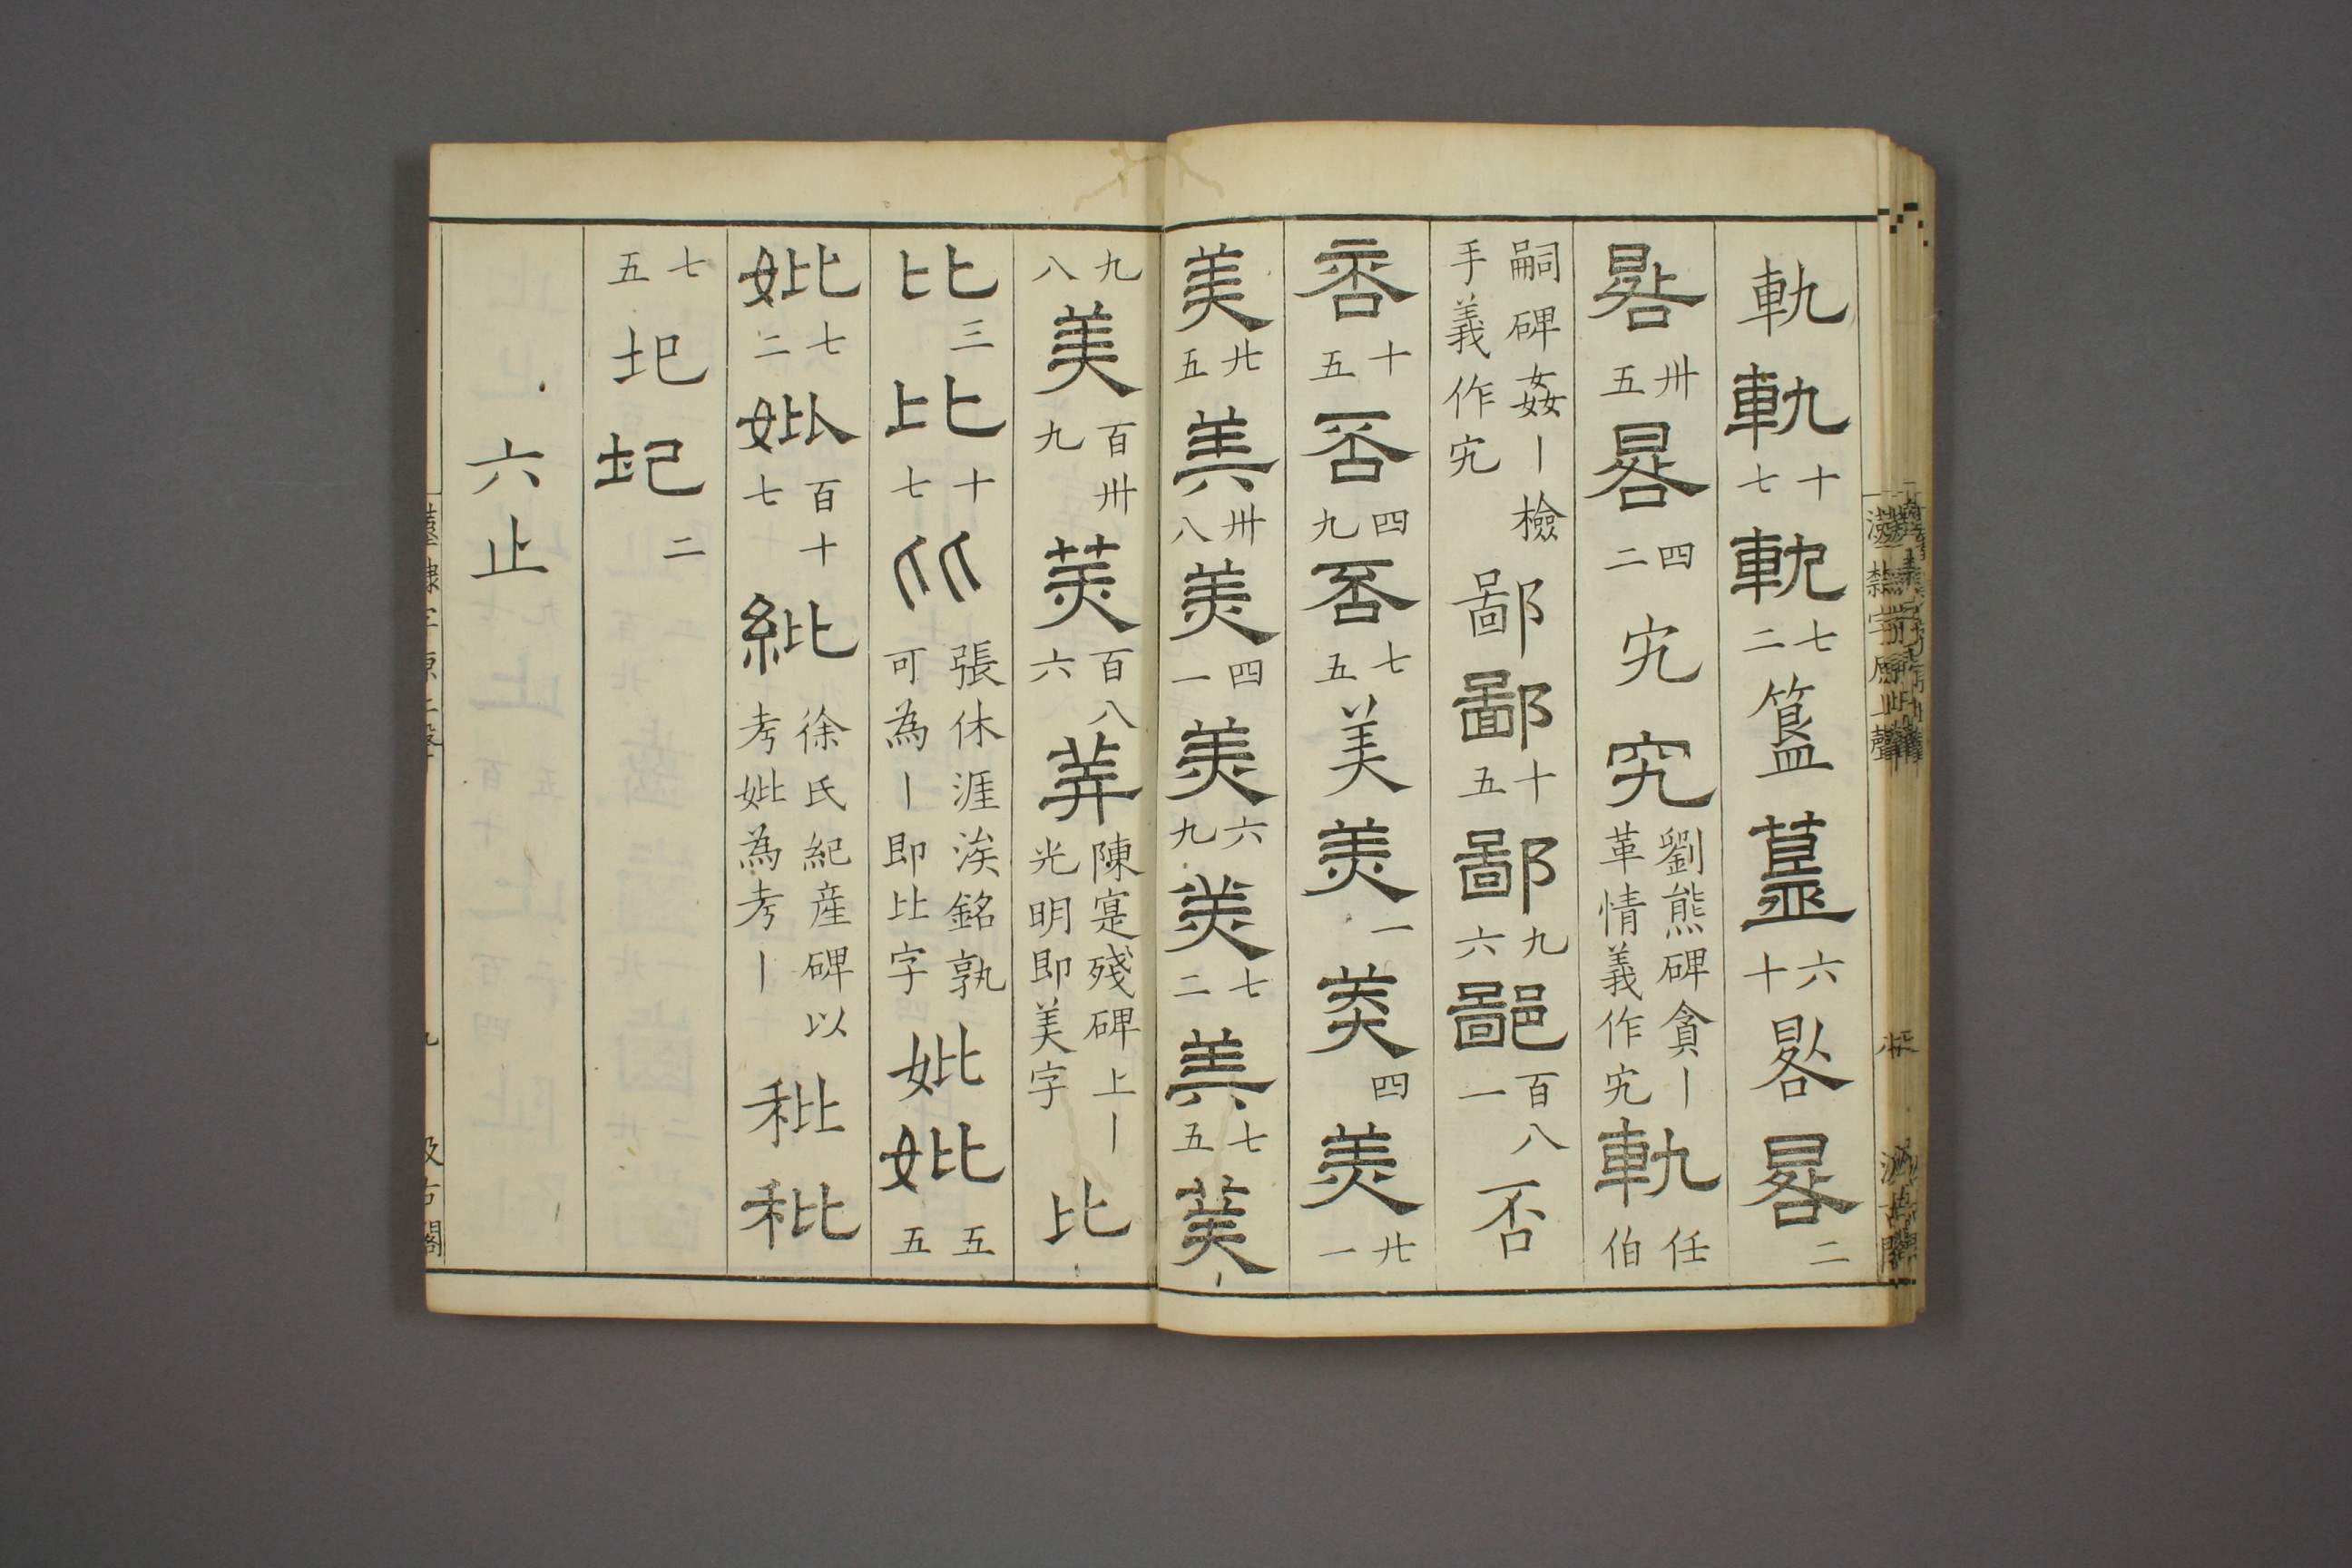 軌軌十七軌七二簋簋六十晷晷二
晷卅五晷四二宄宄劉熊碑貪丨革情義作宄軌任伯
嗣碑姦丨檢手義作宄鄙鄙十五鄙九六鄙百八一否
否十五否四九否七五美美一美四美廿一
美廿五美卅八美四一美六九美七二美七五美
九八美百卅九美百八六美陳寔殘碑上丨光明即美字比
比三比十七比張休涯涘銘孰可為丨即比字妣妣五五
妣七二妣百十七紕徐氏紀産碑以考妣為考丨秕秕
七五圯圯二
六止